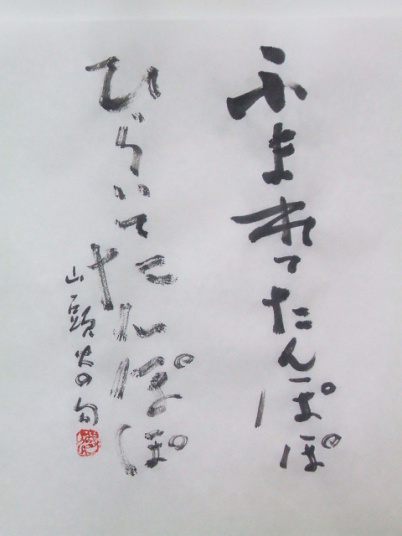 ふまれてたんぽぽ
ひらいてたんぽぽ
山頭火の句